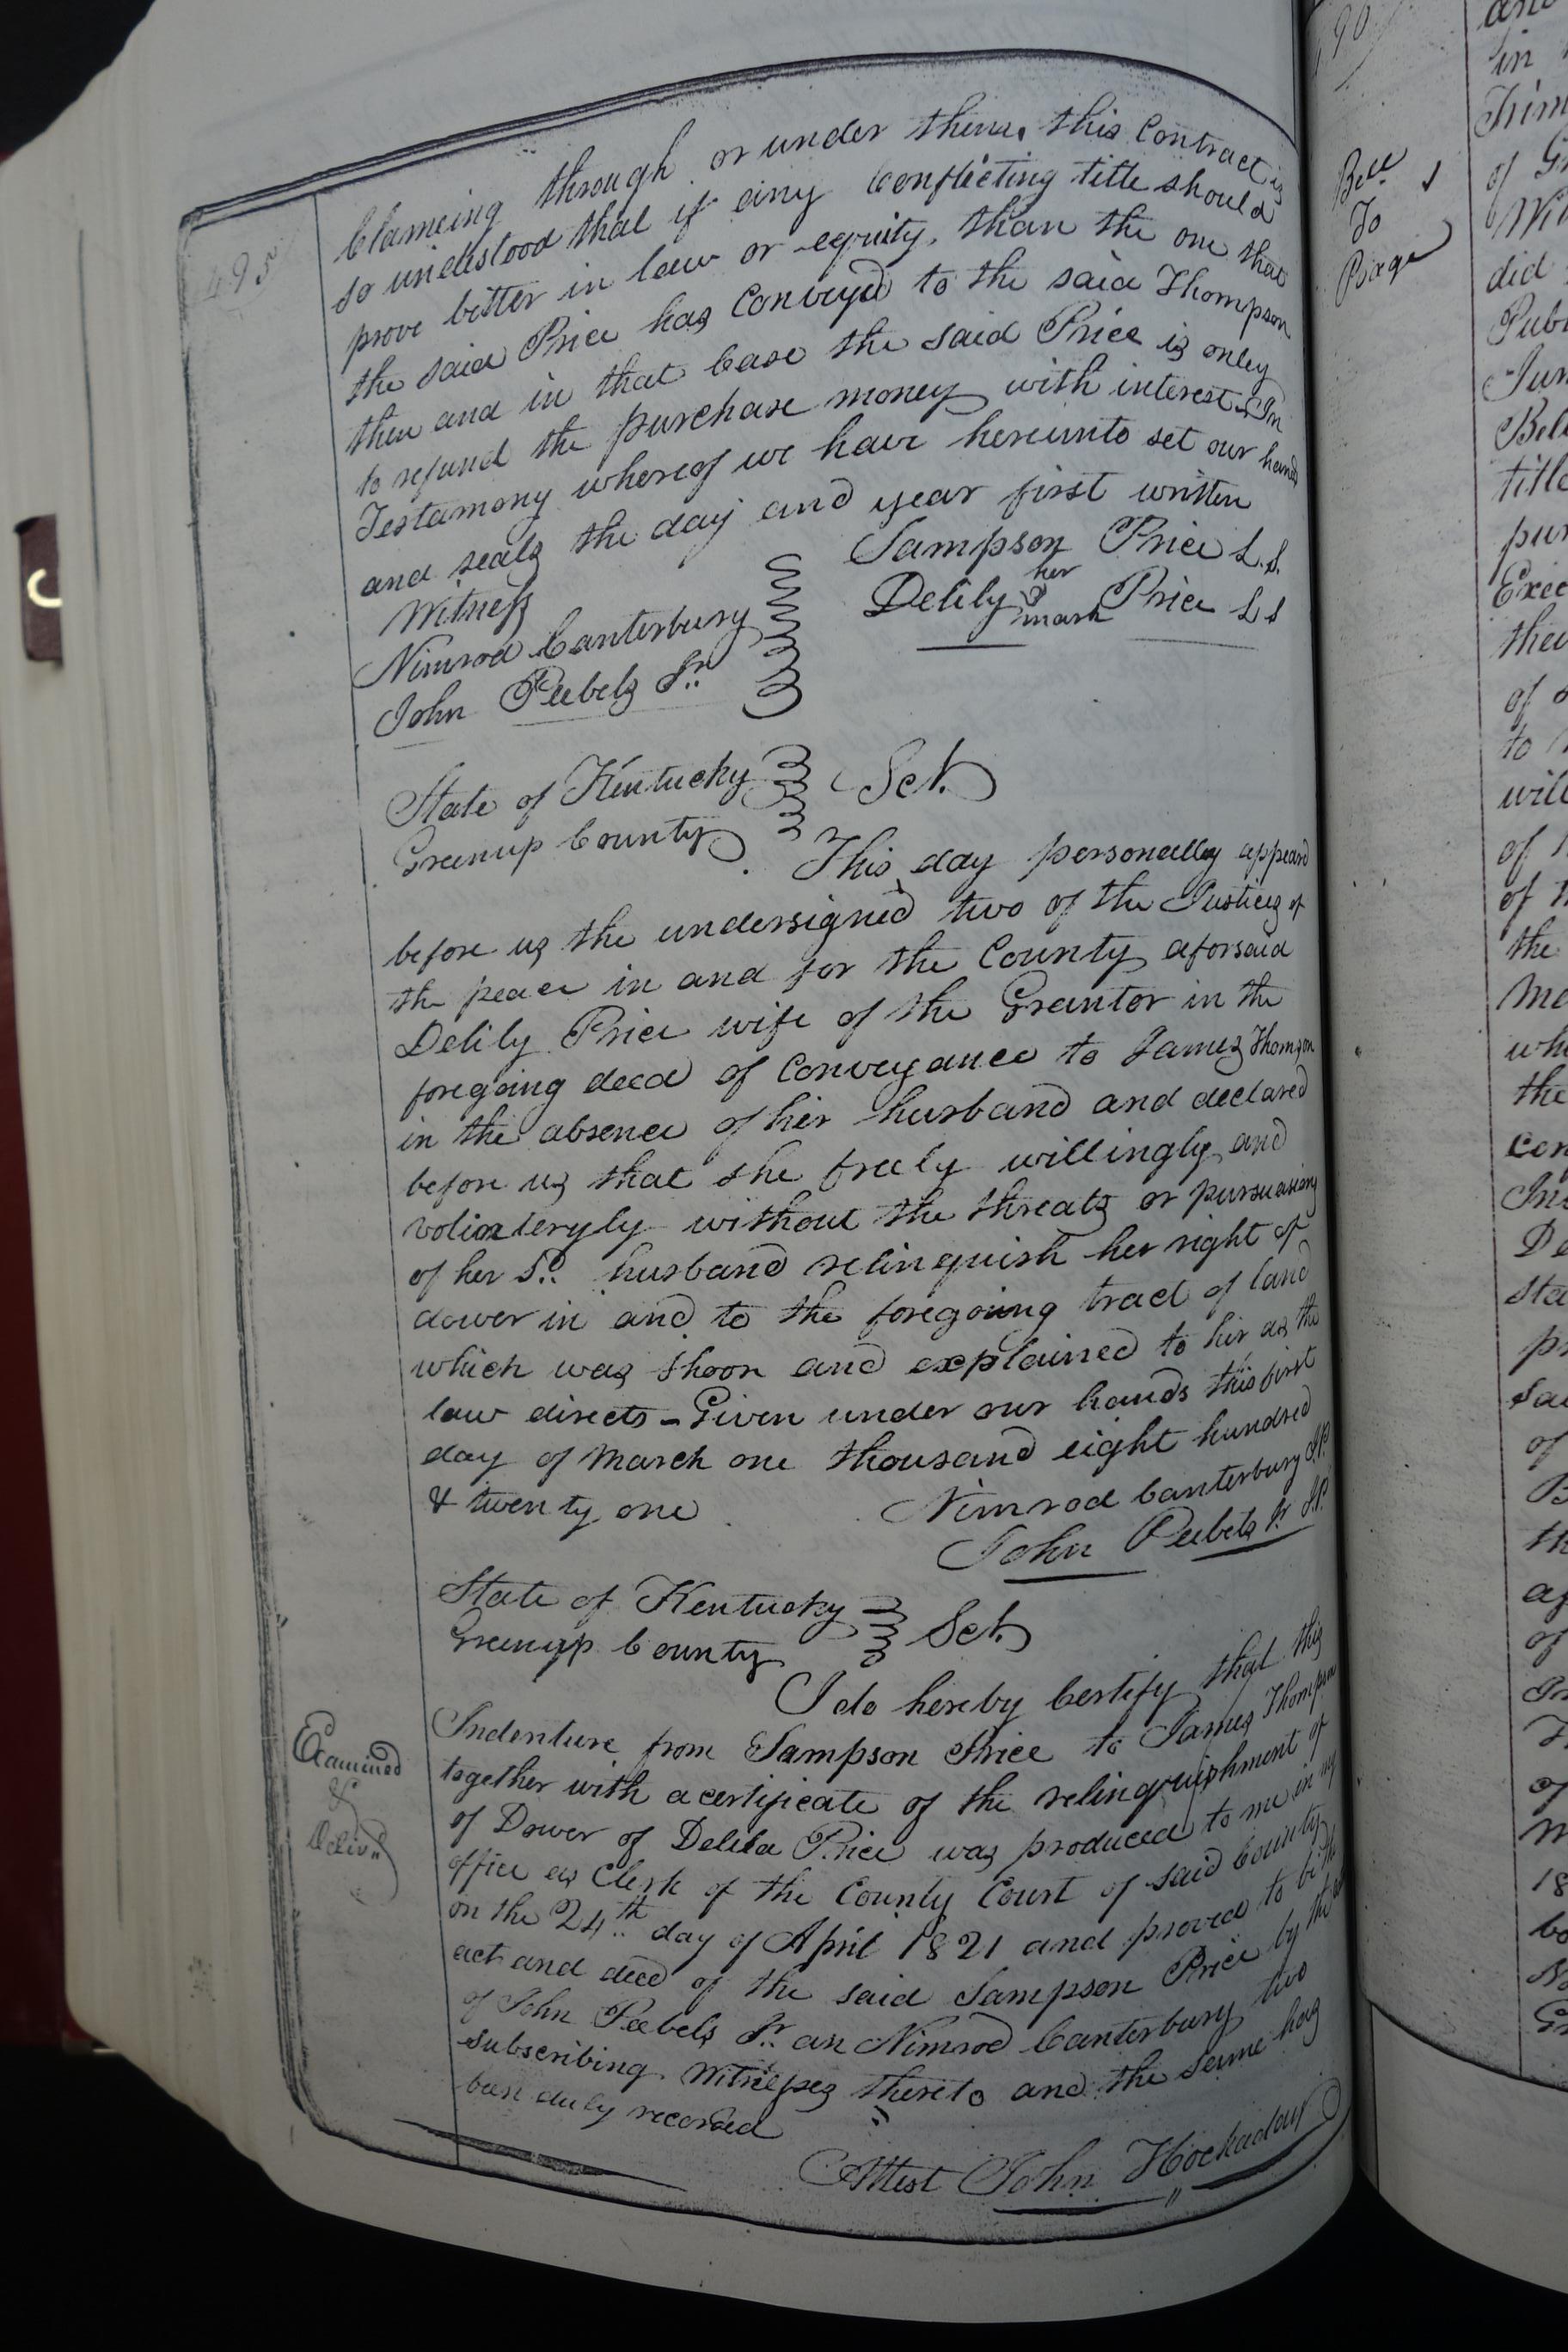 495
Clameing through or under them. this Contract is
so understood that if any Conflicting title should
prove better in law or equity, than the one that
the said Price has Conveyd to the said Thompson
then and in that Case the said Price is only
to refund the purchase money with interest In
Testamony whereof we have hereunto set our hands
and seals the day and year first written
Witness
Sampson Price L.S.
Nimrod Canterbury
Delily her mark Price L S
John Peebels Jr.
State of Kentucky
Greenup County
Sct.
This day personally appeard
before us the undersigned two of the Justices of
the peace in and for the County aforsaid
Delily Price wife of the Grantor in the
foregoing deed of Conveyance to James Thomson
in the absence of her husband and declared
before us that she freely willingly and
volunteryly without the threats or pursuasions
of her Sd. husband relinquish her right of
dower in and to the foregoing tract of land
which was shoon and explained to her as the
law directs - Given under our hands this first
day of March one thousand eight hundred
& twenty one
Nimrod Canterbury J.P.
John Peebels Jr J.P.
State of Kentucky
Greenup County
Sct.
I do hereby Certify that this
Indenture from Sampson Price to James Thompson
together with a certificate of the relinquishment of
of Dower of Delila Price was produced to me in my
office as Clerk of the County Court of said County
on the 24th day of April 1821 and proved to be the
act and deed of the said Sampson Price by the
of John Peebels Jr. an Nimrod Canterbury two
subscribing Witnesses thereto and the same has
been duly recorded
Attest John Hockaday
Examined
&
Delivd
Bell
To
Page
and
in
Trim
of Gr
Wil
did
Pub
Jun
Bel
title
pur
Exec
thei
of
to
will
of
of t
the
Me
whe
the
con
In
De
Sta
pr
sai
of
B
th
af
of
In
of
m
18
bo
Gr